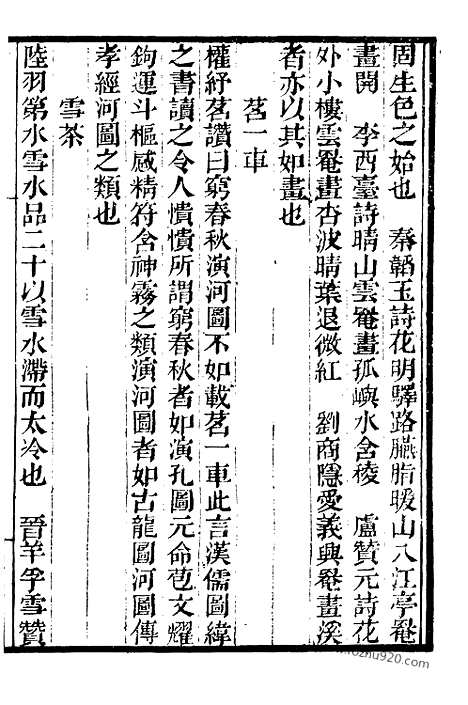 固生色之始也　秦韜玉詩花明驛路臙脂暖山入江亭罨
畫開　李西臺詩晴山雲罨畫孤嶼水含稜　盧贊元詩花
外小樓雲罨畫杏波晴葉退微紅　劉商隱愛義興罨畫溪
者亦以其如畫也
茗一車
權紓茗讚曰窮春秋演河圖不如載茗一車此言漢儒圖緯
之書讀之令人憒憒所謂窮春秋者如演孔圖元命苞文燿
鉤運斗樞感精符含神霧之類演河圖者如古龍圖河圖傳
孝經河圖之類也
雪茶
陸羽第水雪水品二十以雪水滯而太冷也　晉羊孚雪贊